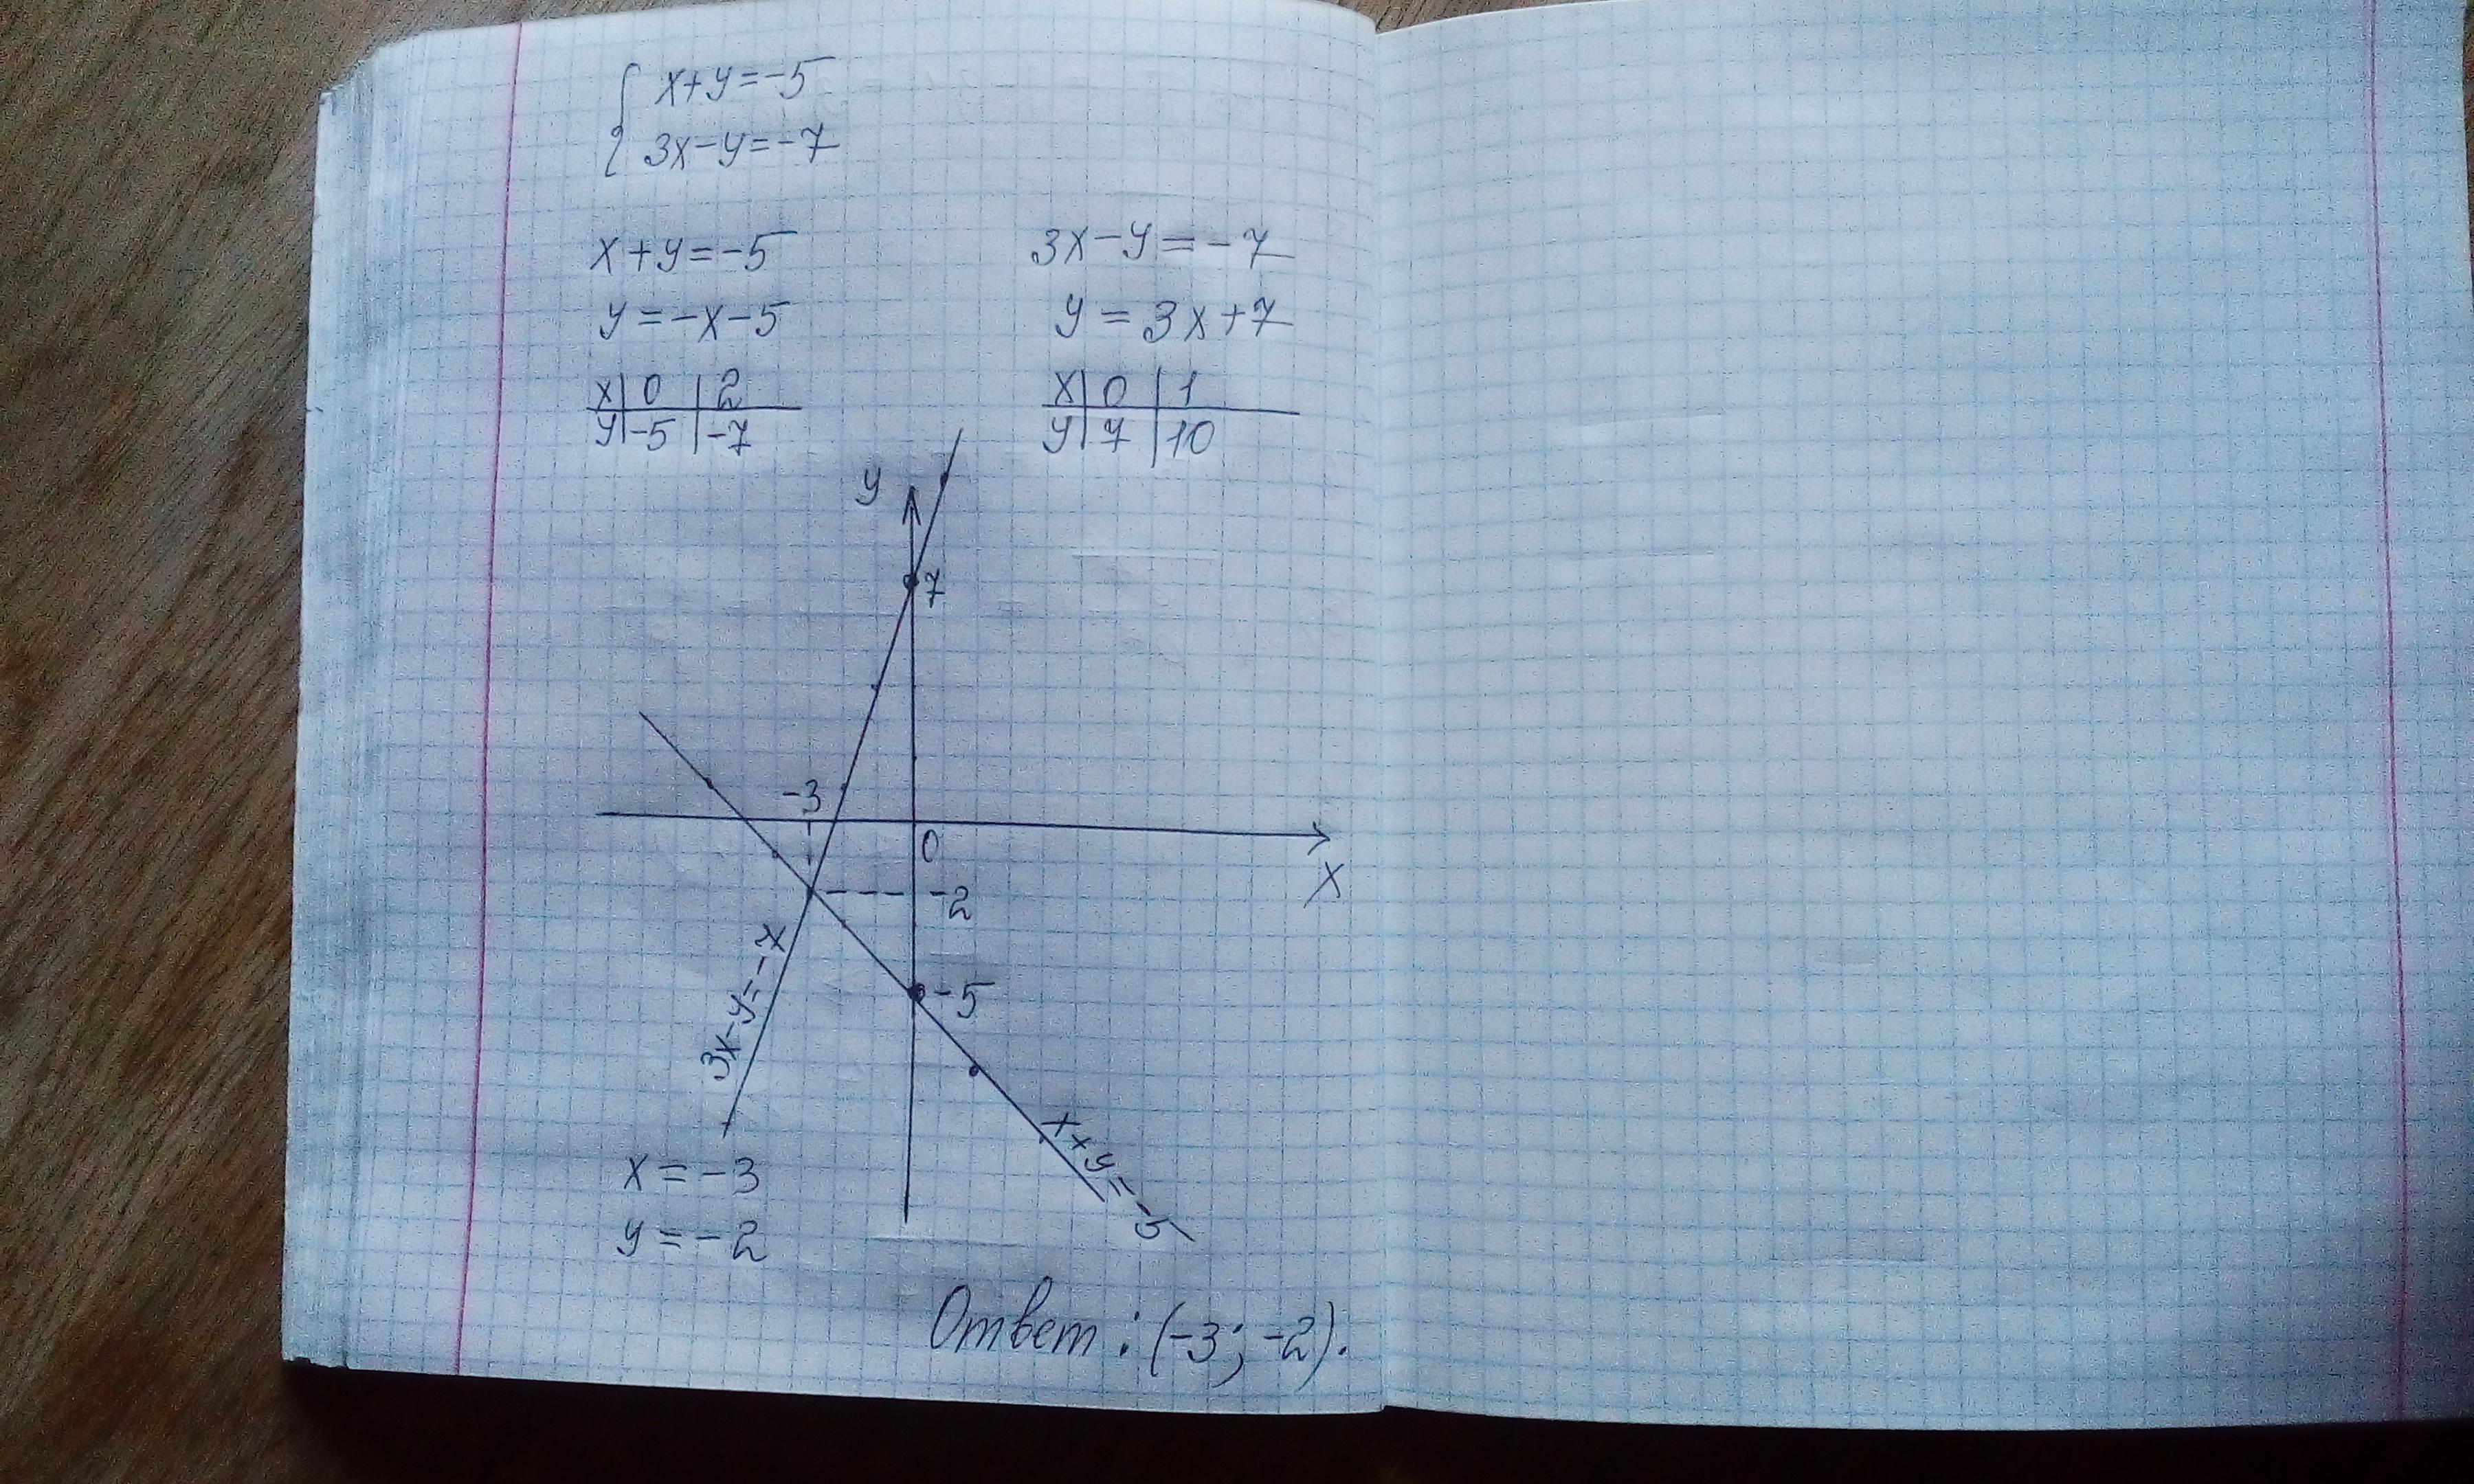 { x+y=-5
3x-y=-7
x+y=-5
y=-x-5
x|0|2
y|-5|-7
3x-y=-7
y=3x+7
x|0|1
y|7|10
y
7
-3
0
x
-2
-5
3x-y=-7
x+y=-5
x=-3
y=-2
Ответ: (-3; -2).